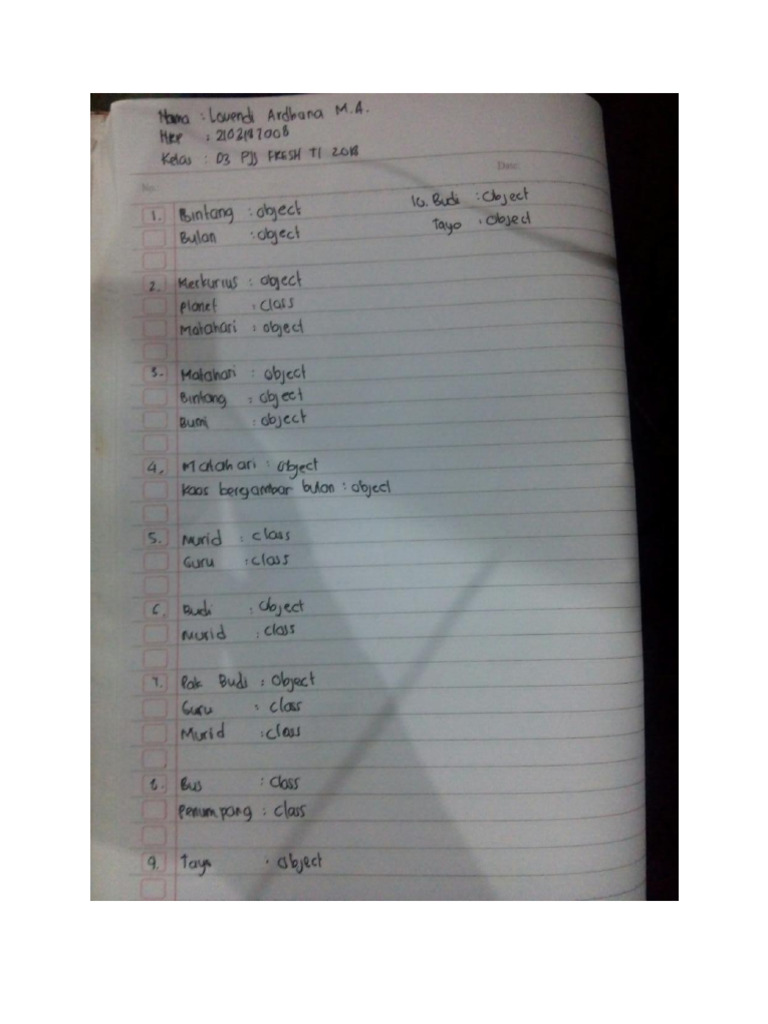 Nama : Lovendi Ardhana M.A.
NRP : 2103187008
Kelas : D3 PJJ FRESH TI 2018
No.
Date
1. Bintang : object
Bulan : object
2. Merkurius : object
Planet : class
Matahari : object
3. Matahari : object
Bintang : object
Bumi : object
4. Matahari : object
Kaos bergambar bulan : object
5. Murid : class
Guru : class
6. Budi : Object
Murid : class
7. Pak Budi : Object
Guru : class
Murid : class
8. Bus : class
Penumpang : class
9. Tayo : object
10. Budi : Object
Tayo : Object